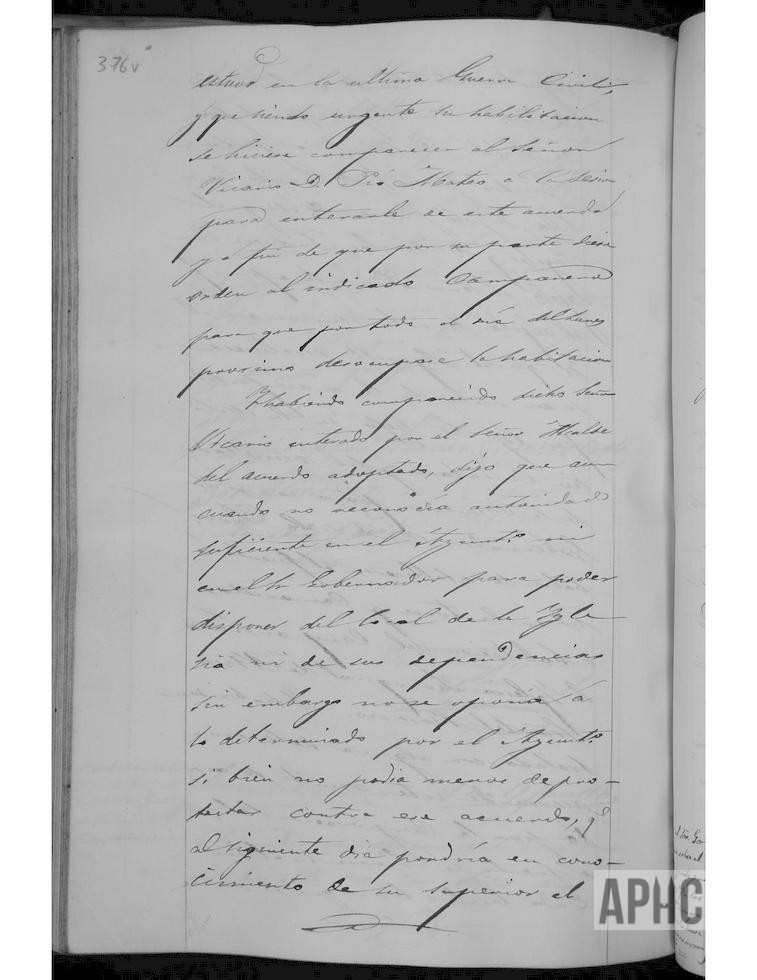 376v
estuvo en la ultima Guerra Civil;
y que siendo urgente su habilitacion
se hiciese comparecer al Señor
Vicario D. Pio Mateo a la Sesion
para enterarle de este acuerdo
y a fin de que por su parte diese
orden al indicado Campanero
para que por todo el dia del lunes
procsimo desocupase la habitacion
Y habiendo comparecido dicho Señor
Vicario enterado por el Señor Alcalde
del acuerdo adoptado, dijo que aun
cuando no reconocia autoridad
suficiente en el Ayuntº. ni
en el Sr Gobernador para poder
disponer del local de la Ygle
sia ni de sus dependencias
sin embargo no se oponia á
lo determinado por el Ayuntº.
si bien no podia menos de pro-
testar contra ese acuerdo, qº
al siguiente dia pondría en cono-
cimiento de su superior el
APHC